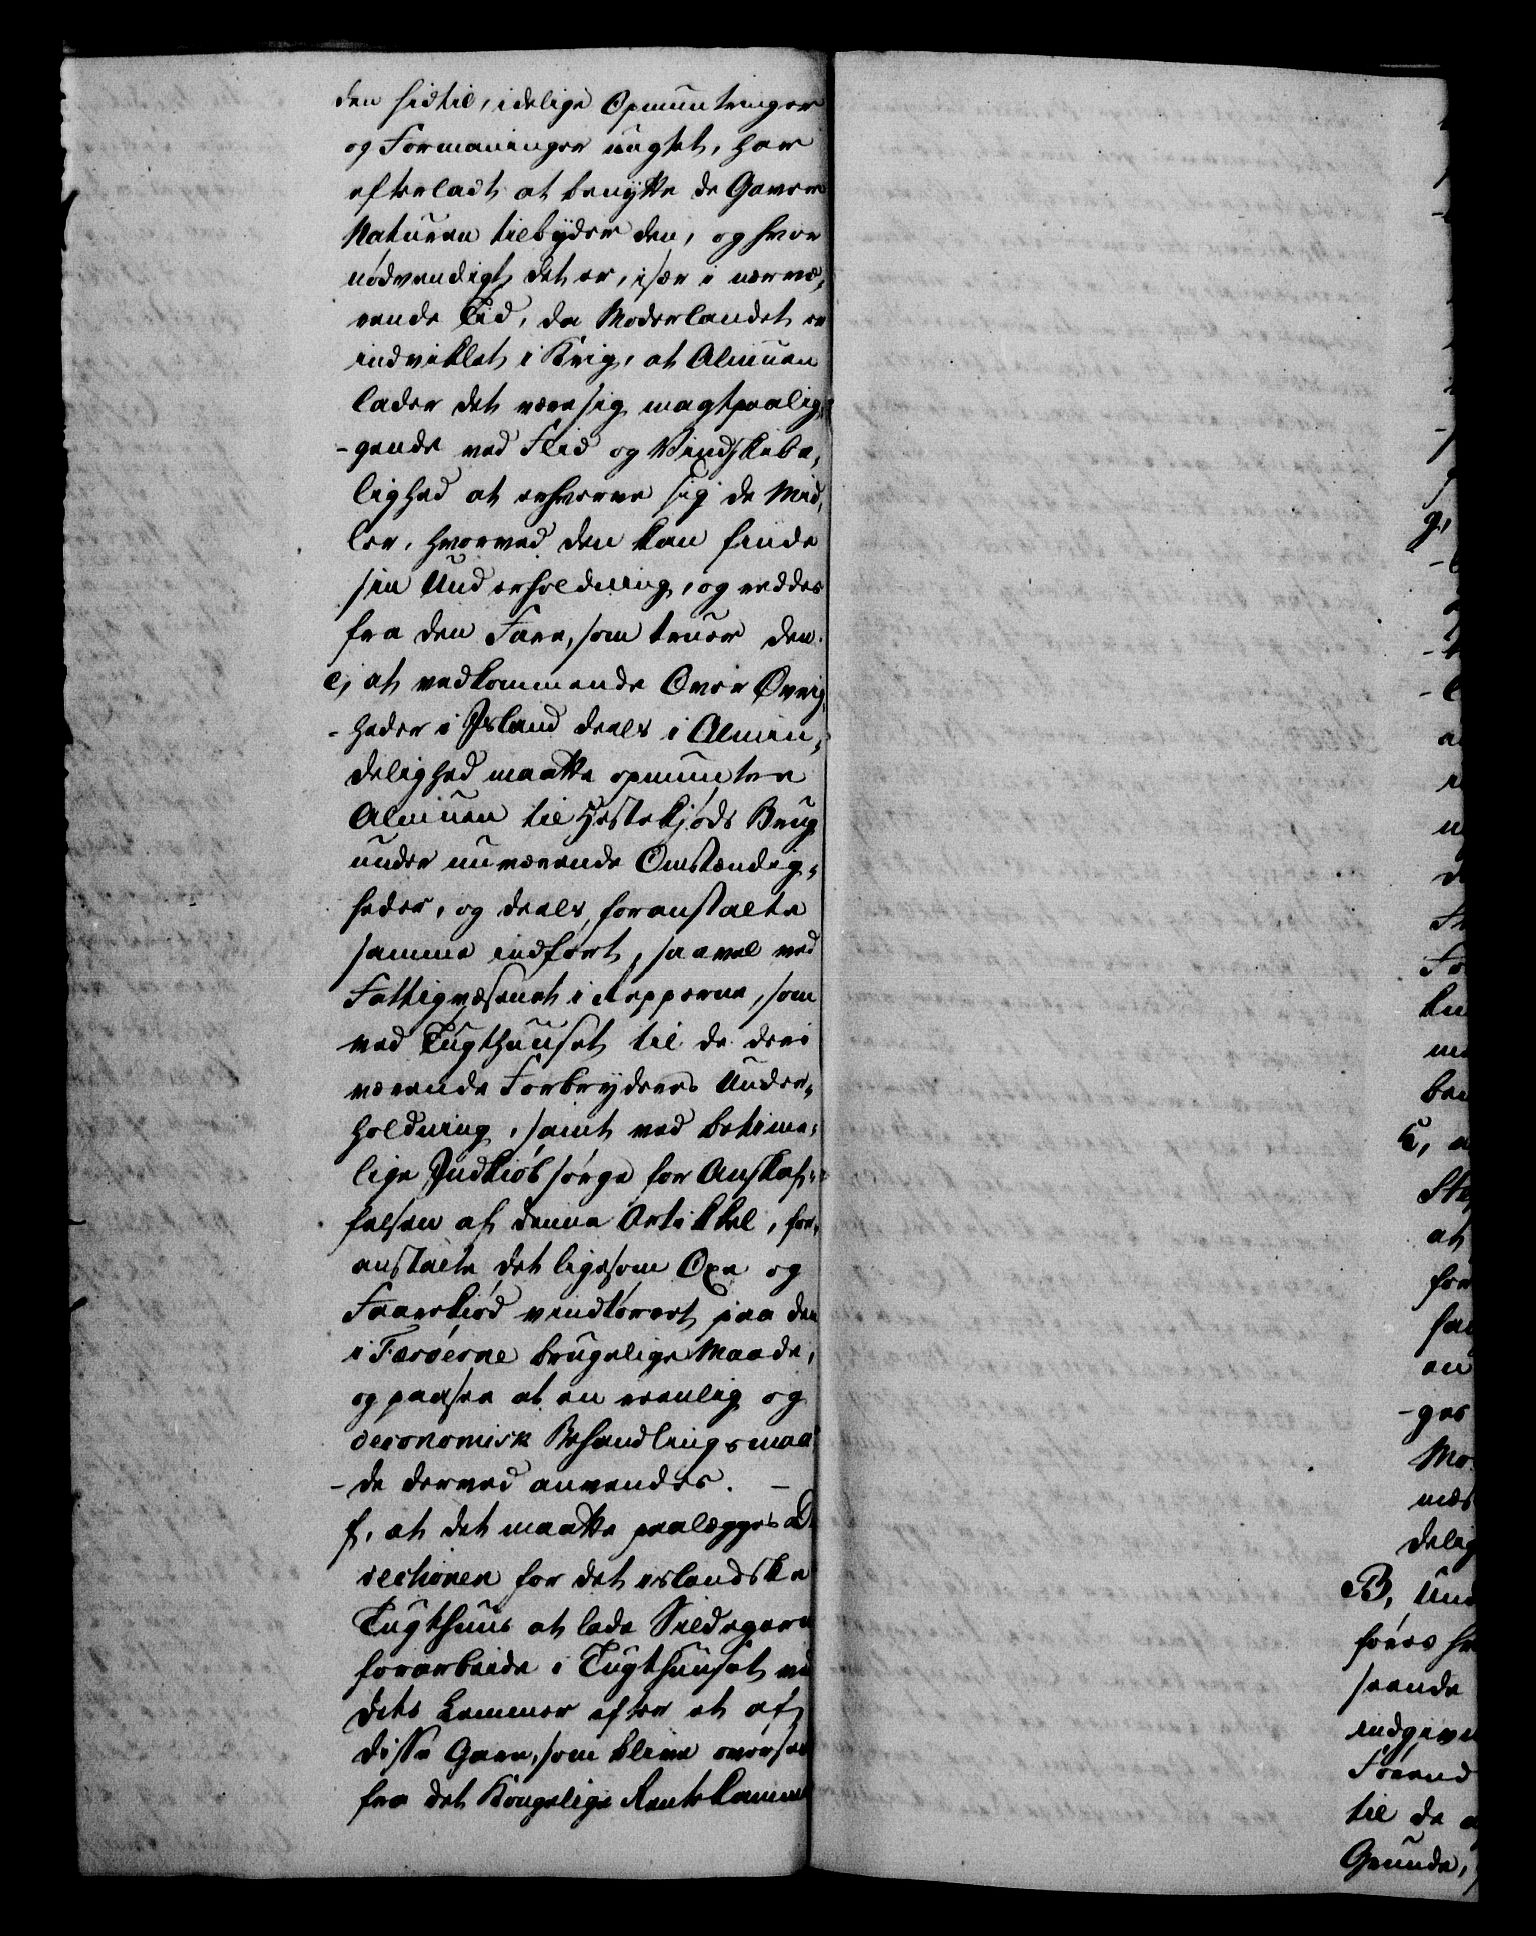 den hidtil, idelige Opmuntringer
og Formaninger uagtet, har
efterladt at benytte de Gaver
Naturen tilbyder den, og hvor
nødvendigt det er, især i nærvæ,
rende Tid, da Moderlandet er
indviklet i Krig, at Almuen
lader det være sig magtpaalig,
-gende ved Flid og Vindskibe,
lighed at erhverve sig de Mid,
ler, hvorved den kan finde
sin Underholdning, og reddes
fra den Fare, som truer den.
e, at vedkommende Over Øvrig,
-heder i Island deels i Almin,
delighed maatte opmuntre
Almuen til Hestekjøds Brug
under nuværende Omstændig,
heder, og deels foranstalte
samme indført, saavel ved
Fattigvæsenet i Repperne, som
ved Tugthuuset til de deri
værende Forbryderes Under,
holdning, samt ved betime,
lige Indkiøb sørge for Anskaf,
felsen af denne Artikkel, for,
anstalte det ligesom Oxe og
Faarekiød vindtørret paa den
i Færøerne brugelige Maade,
og paasee at en reenlig og
oeconomisk Behandlingsmaa
-de derved anvendes. -
f, at det maatte paalægges Di
rectionen for det islandske
Tugthuus at lade Sildegarn
forarbeide i Tugthuuset ved
dets Lemmer efter et af
disse Garn, som blive oversen
fra det Kongelige Rentekamme
g,
k,
at
for
en
-ges
delig
B, Und
føres
seende
indgive
til de
Grunde,